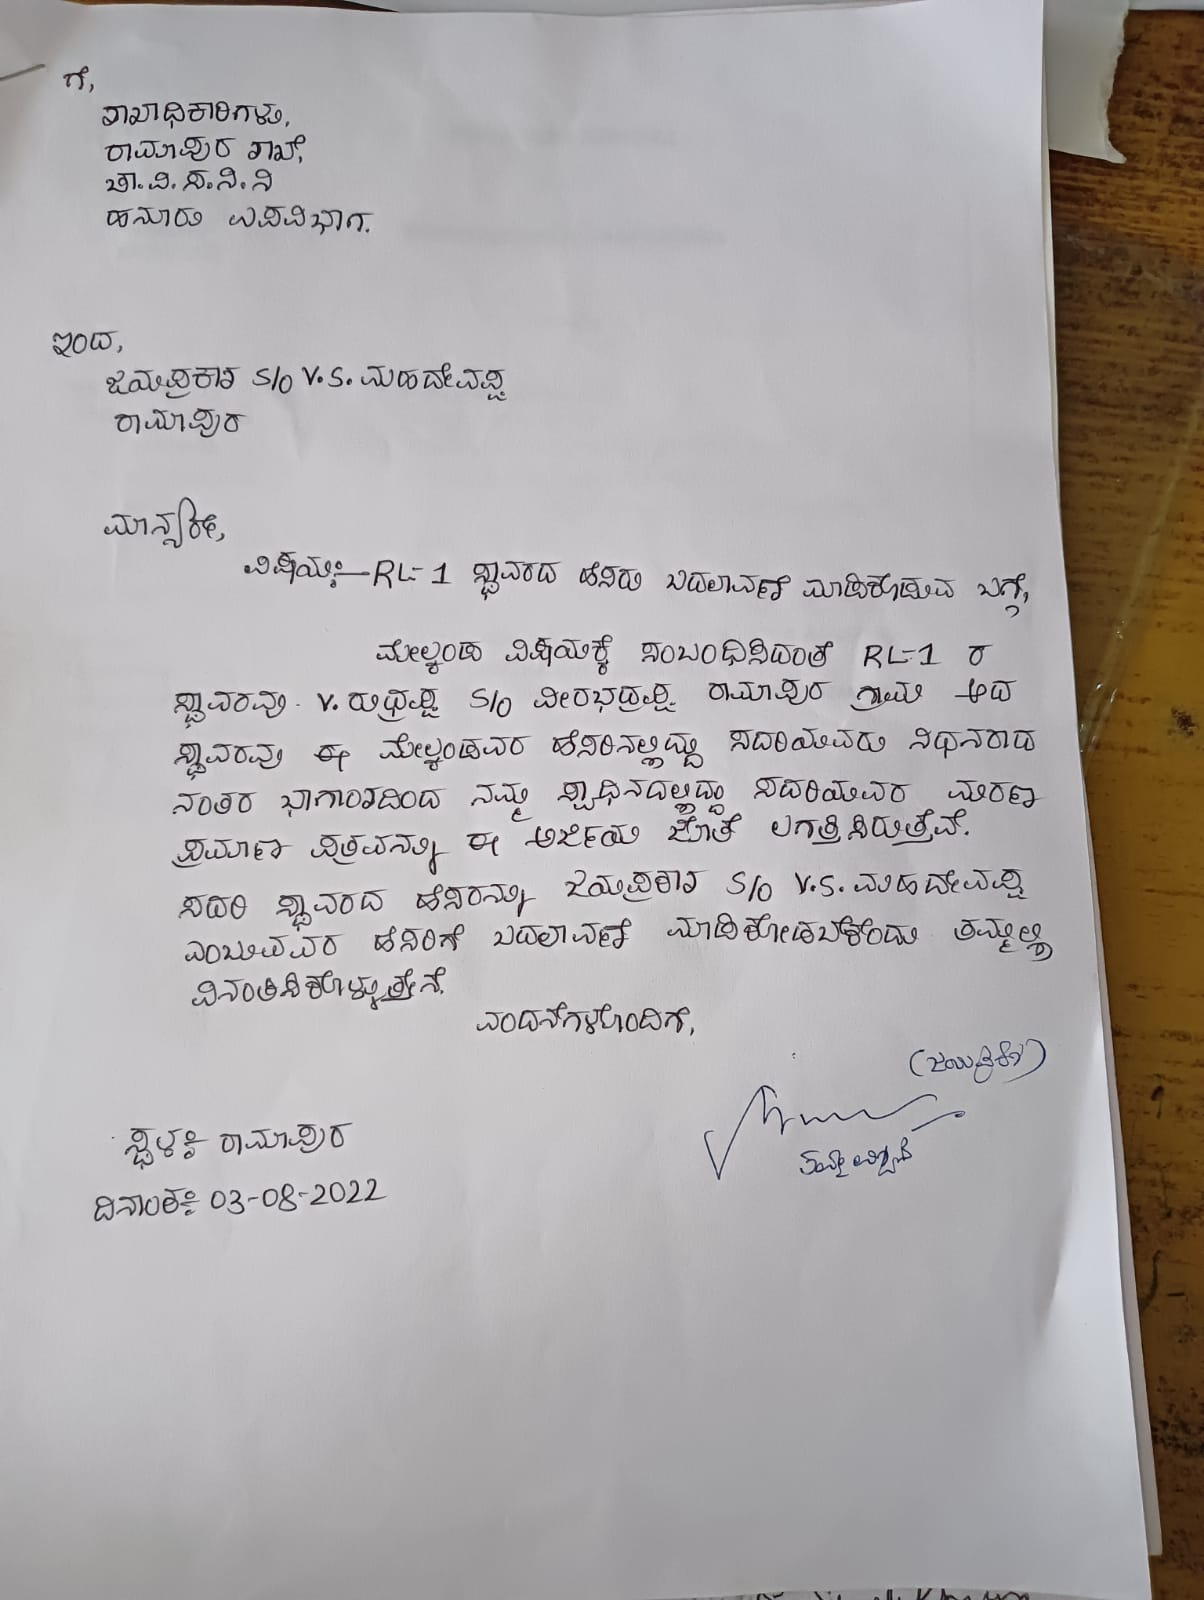 ಗೆ,
ಶಾಖಾಧಿಕಾರಿಗಳು,
ರಾಮಾಪುರ ಶಾಖೆ,
ಚಾ.ವಿ.ಸ.ನಿ.ನಿ
ಹನೂರು ಉಪವಿಭಾಗ.
ಇಂದ,
ಜಯಪ್ರಕಾಶ S/o V.S. ಮಹದೇವಪ್ಪ
ರಾಮಾಪುರ
ಮಾನ್ಯರೇ,
ವಿಷಯ:- RL-1 ಸ್ಥಾವರದ ಹೆಸರು ಬದಲಾವಣೆ ಮಾಡಿಕೊಡುವ ಬಗ್ಗೆ,
ಮೇಲ್ಕಂಡ ವಿಷಯಕ್ಕೆ ಸಂಬಂಧಿಸಿದಂತೆ RL-1 ರ
ಸ್ಥಾವರವು V. ರುದ್ರಪ್ಪ S/o ವೀರಭದ್ರಪ್ಪ ರಾಮಾಪುರ ಗ್ರಾಮ ಆದ
ಸ್ಥಾವರವು ಈ ಮೇಲ್ಕಂಡವರ ಹೆಸರಿನಲ್ಲಿದ್ದು ಸದರಿಯವರು ನಿಧನರಾದ
ನಂತರ ಭಾಗಾಂಶದಿಂದ ನಮ್ಮ ಸ್ವಾಧಿನದಲ್ಲಿದ್ದು ಸದರಿಯವರ ಮರಣ
ಪ್ರಮಾಣ ಪತ್ರವನ್ನು ಈ ಅರ್ಜಿಯ ಜೊತೆ ಲಗತ್ತಿಸಿರುತ್ತೆವೆ.
ಸದರಿ ಸ್ಥಾವರದ ಹೆಸರನ್ನು ಜಯಪ್ರಕಾಶ S/o V.S. ಮಹದೇವಪ್ಪ
ಎಂಬುವವರ ಹೆಸರಿಗೆ ಬದಲಾವಣೆ ಮಾಡಿಕೋಡಬೆಕೆಂದು ತಮ್ಮಲ್ಲಿ
ವಿನಂತಿಸಿಕೊಳ್ಳುತ್ತೇನೆ.
ವಂದನೆಗಳೊಂದಿಗೆ,
(ಜಯಪ್ರಕಾಶ)
ಸ್ಥಳ:- ರಾಮಾಪುರ
ದಿನಾಂಕ:- 03-08-2022